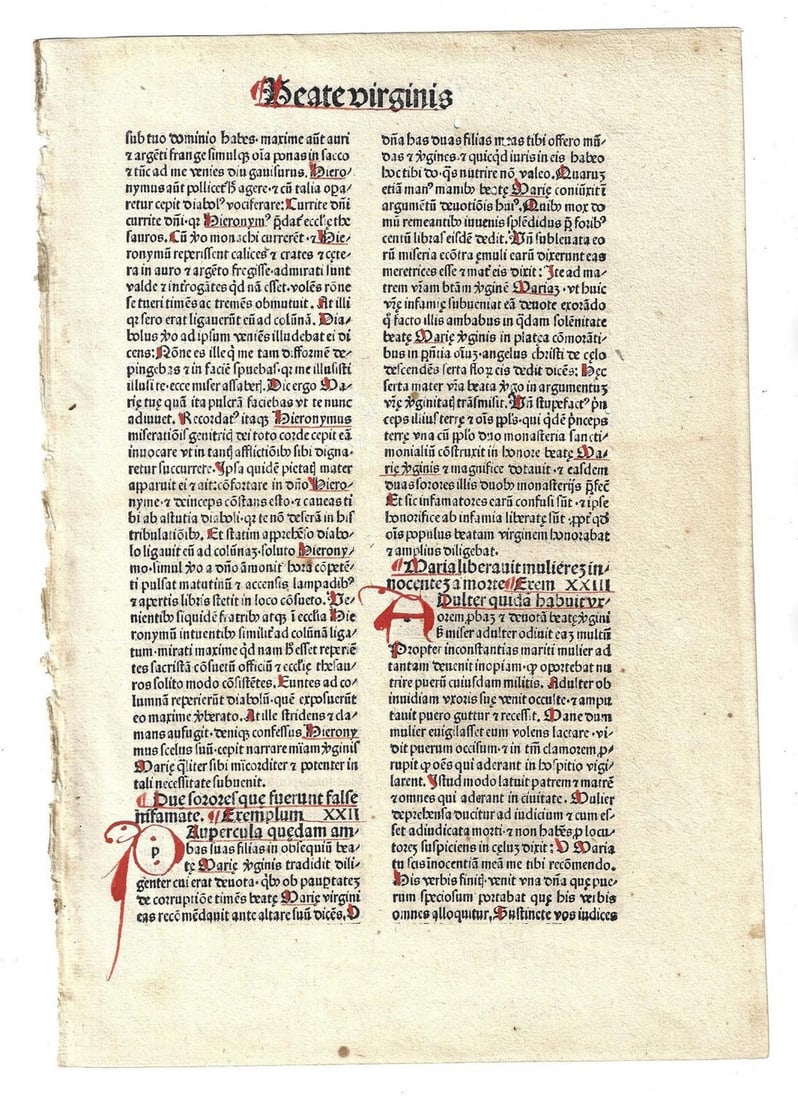 Beate virginis
sub tuo dominio habes. maxime aūt auri
⁊ argēti frange simulq; oīa ponas in sacco
⁊ tūc ad me venies diu gauisurus. Hiero⸗
nymus aūt pollicetᷣ sᷣ agere. ⁊ cū talia opa⸗
retur cepit diabolꝰ vociferare: Currite dn̄i
currite dn̄i. qꝛ Hieronymꝰ p̄dat eccl̄ię the
sauros. Cū ꝟo monachi currerēt. ⁊ Hie⸗
ronymū reperissent calices ⁊ crates ⁊ cęte⸗
ra in auro ⁊ argēto fregisse. admirati sunt
valde ⁊ intrōgātes qd nā esset. volēs rōne
se tueri timēs ac tremēs obmutuit. At illi
qꝛ sero erat ligauerūt eū ad colūnā. Dia⸗
bolus ꝟo ad ipsum veniēs illudebat ei di
cens: Nōne es ille q̄ me tam difformē de⸗
pingebas ⁊ in faciē spuebas. qꝛ me illusisti
illusi te. ecce miser assaberꝭ. Dic ergo Ma⸗
rię tuę quā ita pulcrā faciebas vt te nunc
adiuuet. Recordatꝰ itaqꝫ Hieronymus
miseratiōis genitricꝭ dei toto corde cepit eā
inuocare vt in tantꝭ afflictiōibꝰ sibi digna⸗
retur succurrere. Ipsa quidē pietatꝭ mater
apparuit ei ⁊ ait: cōfortare in dn̄o Hiero⸗
nyme. ⁊ deinceps cōstans esto. ⁊ caueas ti
bi ab astutia diaboli. qꝛ te nō deserā in his
tribulatiōibꝰ. Et statim apprehēso diabo⸗
lo ligauit eū ad colūnaꝫ. soluto Hierony⸗
mo. simul ꝟo a dn̄o āmonit hora cōpetē⸗
ti pulsat matutinū ⁊ accensis lampadibꝰ
⁊ apertis libris stetit in loco cōsueto. Ve⸗
nientibꝰ siquidē fratribꝰ atqꝫ ī eccl̄ia Hie
ronymū intuentibꝰ similit̄ ad colūnā liga⸗
tum. mirati maxime qd nam sᷣ esset reperiē
tes sacristā cōsuetū officiū ⁊ eccl̄ię thesau⸗
ros solito modo cōsistētes. Euntes ad co⸗
lumnā reperierūt diabolū. quē exposuerūt
eo maxime ꝟberato. At ille stridens ⁊ cla⸗
mans aufugit. deniqꝫ confessus Hierony
mus scelus suū. cepit narrare mīam ꝟginis
Marię q̄liter sibi mīcorditer ⁊ potenter in
tali necessitate subuenit.
Due sorores que fuerunt false
infamate. Exemplum XXII
p Aupercula quędam am⸗
bas suas filias in obsequiū bea⸗
tę Marię ꝟginis tradidit dili⸗
genter cui erat deuota. qꝫ ob paupertateꝫ
de corruptiōe timēs beatę Marię virgini
eas recōmēdauit ante altare suū dicēs. O
dn̄a has duas filias meas tibi offero mū⸗
das ⁊ ꝟgines. ⁊ quicqd iuris in eis habeo
hoc tibi do. qꝛ nutrire nō valeo. Quaruꝫ
etiā manꝰ manibꝰ beatę Marię coniūxit ī
argumētū deuotiōis huiꝰ. Quibꝰ mox do
mū remeantibꝰ iuuenis splēdidus p̄ foribꝰ
centū libras eisdē dedit. Vn̄ subleuata eo
rū miseria ecōtra ęmuli earū dixerunt eas
meretrices esse ⁊ mat̄ eis dixit: Ite ad ma⸗
trem vr̄am btām ꝟginē Mariaꝫ. vt huic
vr̄ę infamię subueniat eā deuote exorādo
q̄ facto illis ambabus in qdam solēnitate
beatę Marię ꝟginis in platea cōmorāti⸗
bus in pn̄tia oīuꝫ. angelus christi de cęlo
descendēs serta floꝝ eis dedit dicēs: Hęc
serta mater vr̄a beata ꝟgo in argumentuꝫ
vr̄ę ꝟginitatꝭ trāsmisit. Vn̄ stupefactꝰ prin
ceps illius terrę ⁊ oīs pp̄ls. qui qdē p̄nceps
terrę vna cū pp̄lo dn̄o monasteria sancti⸗
monialiū cōstruxit in honore beatę Ma⸗
rię ꝟginis ⁊ magnifice dotauit. ⁊ easdem
duas sorores illis duobꝰ monasterijs p̄fec̄
Et sic infamatores earū confusi sūt. ⁊ ipse
honorifice ab infamia liberatę sūt. ꝓpt̄ qd
oīs populus beatam virginem honorabat
⁊ amplius diligebat.
Maria liberauit mulierez in⸗
nocentez a morte Exem XXIII
A Dulter quidā habuit vx⸗
orem ꝓbaꝫ ⁊ deuotā beatę ꝟgini
sᷣ miser adulter odiuit eaꝫ multū
Propter inconstantias mariti mulier ad
tantam deuenit inopiam. ꝙ oportebat nu
trire puerū cuiusdam militis. Adulter ob
inuidiam vxoris suę venit occulte. ⁊ ampu
tauit puero guttur ⁊ recessit. Mane dum
mulier euigilasset eum volens lactare. vi⸗
dit puerum occisum. ⁊ in tm̄ clamorem ꝓ⸗
rupit ꝙ oēs qui aderant in hospitio vigi⸗
larent. Istud modo latuit patrem ⁊ matrē
⁊ omnes qui aderant in ciuitate. Mulier
deprehensa ducitur ad iudicium ⁊ cum es⸗
set adiudicata morti. ⁊ non habēs ꝓlocu⸗
tores suspiciens in cęluꝫ dixit: O Maria
tu scis īnocentiā meā me tibi recōmendo.
His verbis finitꝭ. venit vna dn̄a quę pue⸗
rum speciosum portabat quę his verbis
omnes alloquitur. Sustinete vos iudices